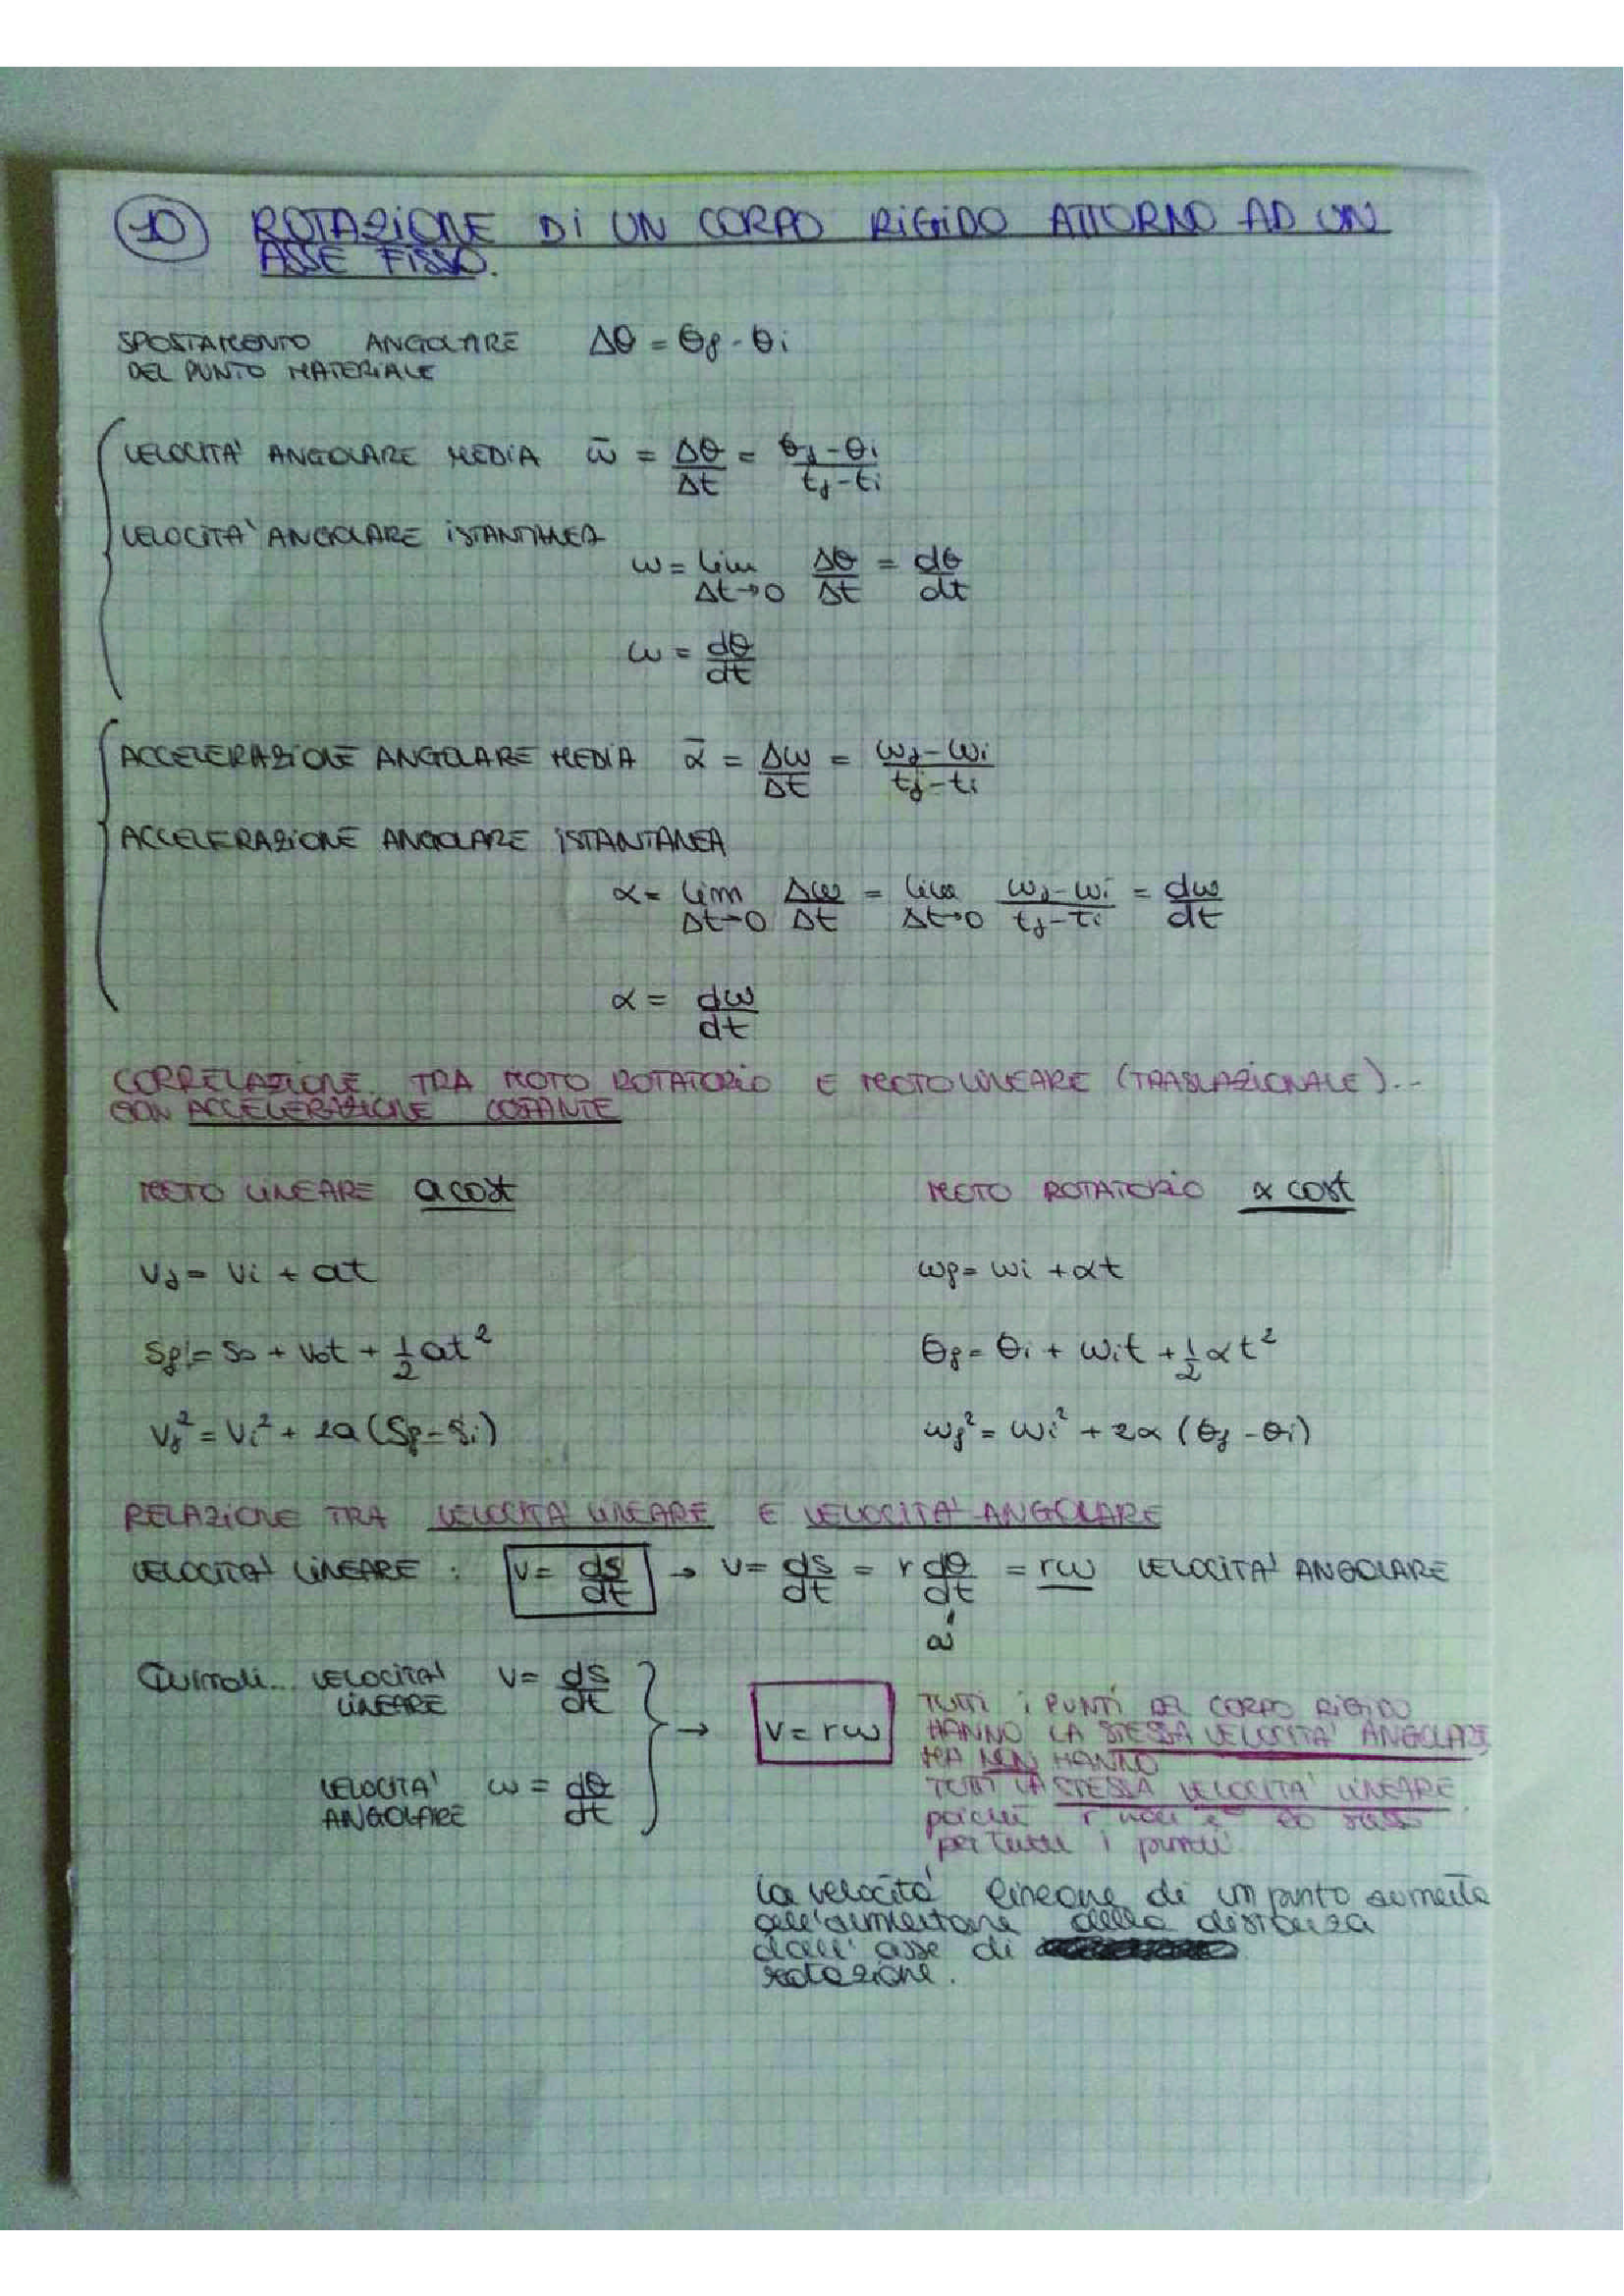 10 ROTAZIONE DI UN CORPO RIGIDO ATTORNO AD UN
ASSE FISSO.
SPOSTAMENTO ANGOLARE Δθ = θf - θi
DEL PUNTO MATERIALE
VELOCITA' ANGOLARE MEDIA ω̄ = Δθ/Δt = (θf - θi)/(tf - ti)
VELOCITA' ANGOLARE ISTANTANEA
ω = lim Δt→0 Δθ/Δt = dθ/dt
ω = dθ/dt
ACCELERAZIONE ANGOLARE MEDIA ᾱ = Δω/Δt = (ωf - ωi)/(tf - ti)
ACCELERAZIONE ANGOLARE ISTANTANEA
α = lim Δt→0 Δω/Δt = lim Δt→0 (ωf - ωi)/(tf - ti) = dω/dt
α = dω/dt
CORRELAZIONE TRA MOTO ROTATORIO E MOTO LINEARE (TRASLAZIONALE)..
CON ACCELERAZIONE COSTANTE
MOTO LINEARE a cost MOTO ROTATORIO α cost
Vf = Vi + at ωf = ωi + αt
Sf = So + Vot + 1/2 at² θf = θi + ωit + 1/2 αt²
Vf² = Vi² + 2a (Sf - Si) ωf² = ωi² + 2α (θf - θi)
RELAZIONE TRA VELOCITA' LINEARE E VELOCITA' ANGOLARE
VELOCITA' LINEARE : V = ds/dt → V = ds/dt = r dθ/dt = rω VELOCITA' ANGOLARE
ω
Quindi... VELOCITA' V = ds/dt
LINEARE
→ V = rω
TUTTI I PUNTI DEL CORPO RIGIDO
HANNO LA STESSA VELOCITA' ANGOLARE
MA NON HANNO
TUTTI LA STESSA VELOCITA' LINEARE
poichè r non è lo stesso
per tutti i punti
VELOCITA' ω = dθ/dt
ANGOLARE
la velocità lineare di un punto aumenta
all'aumentare della distanza
dall'asse di
rotazione.